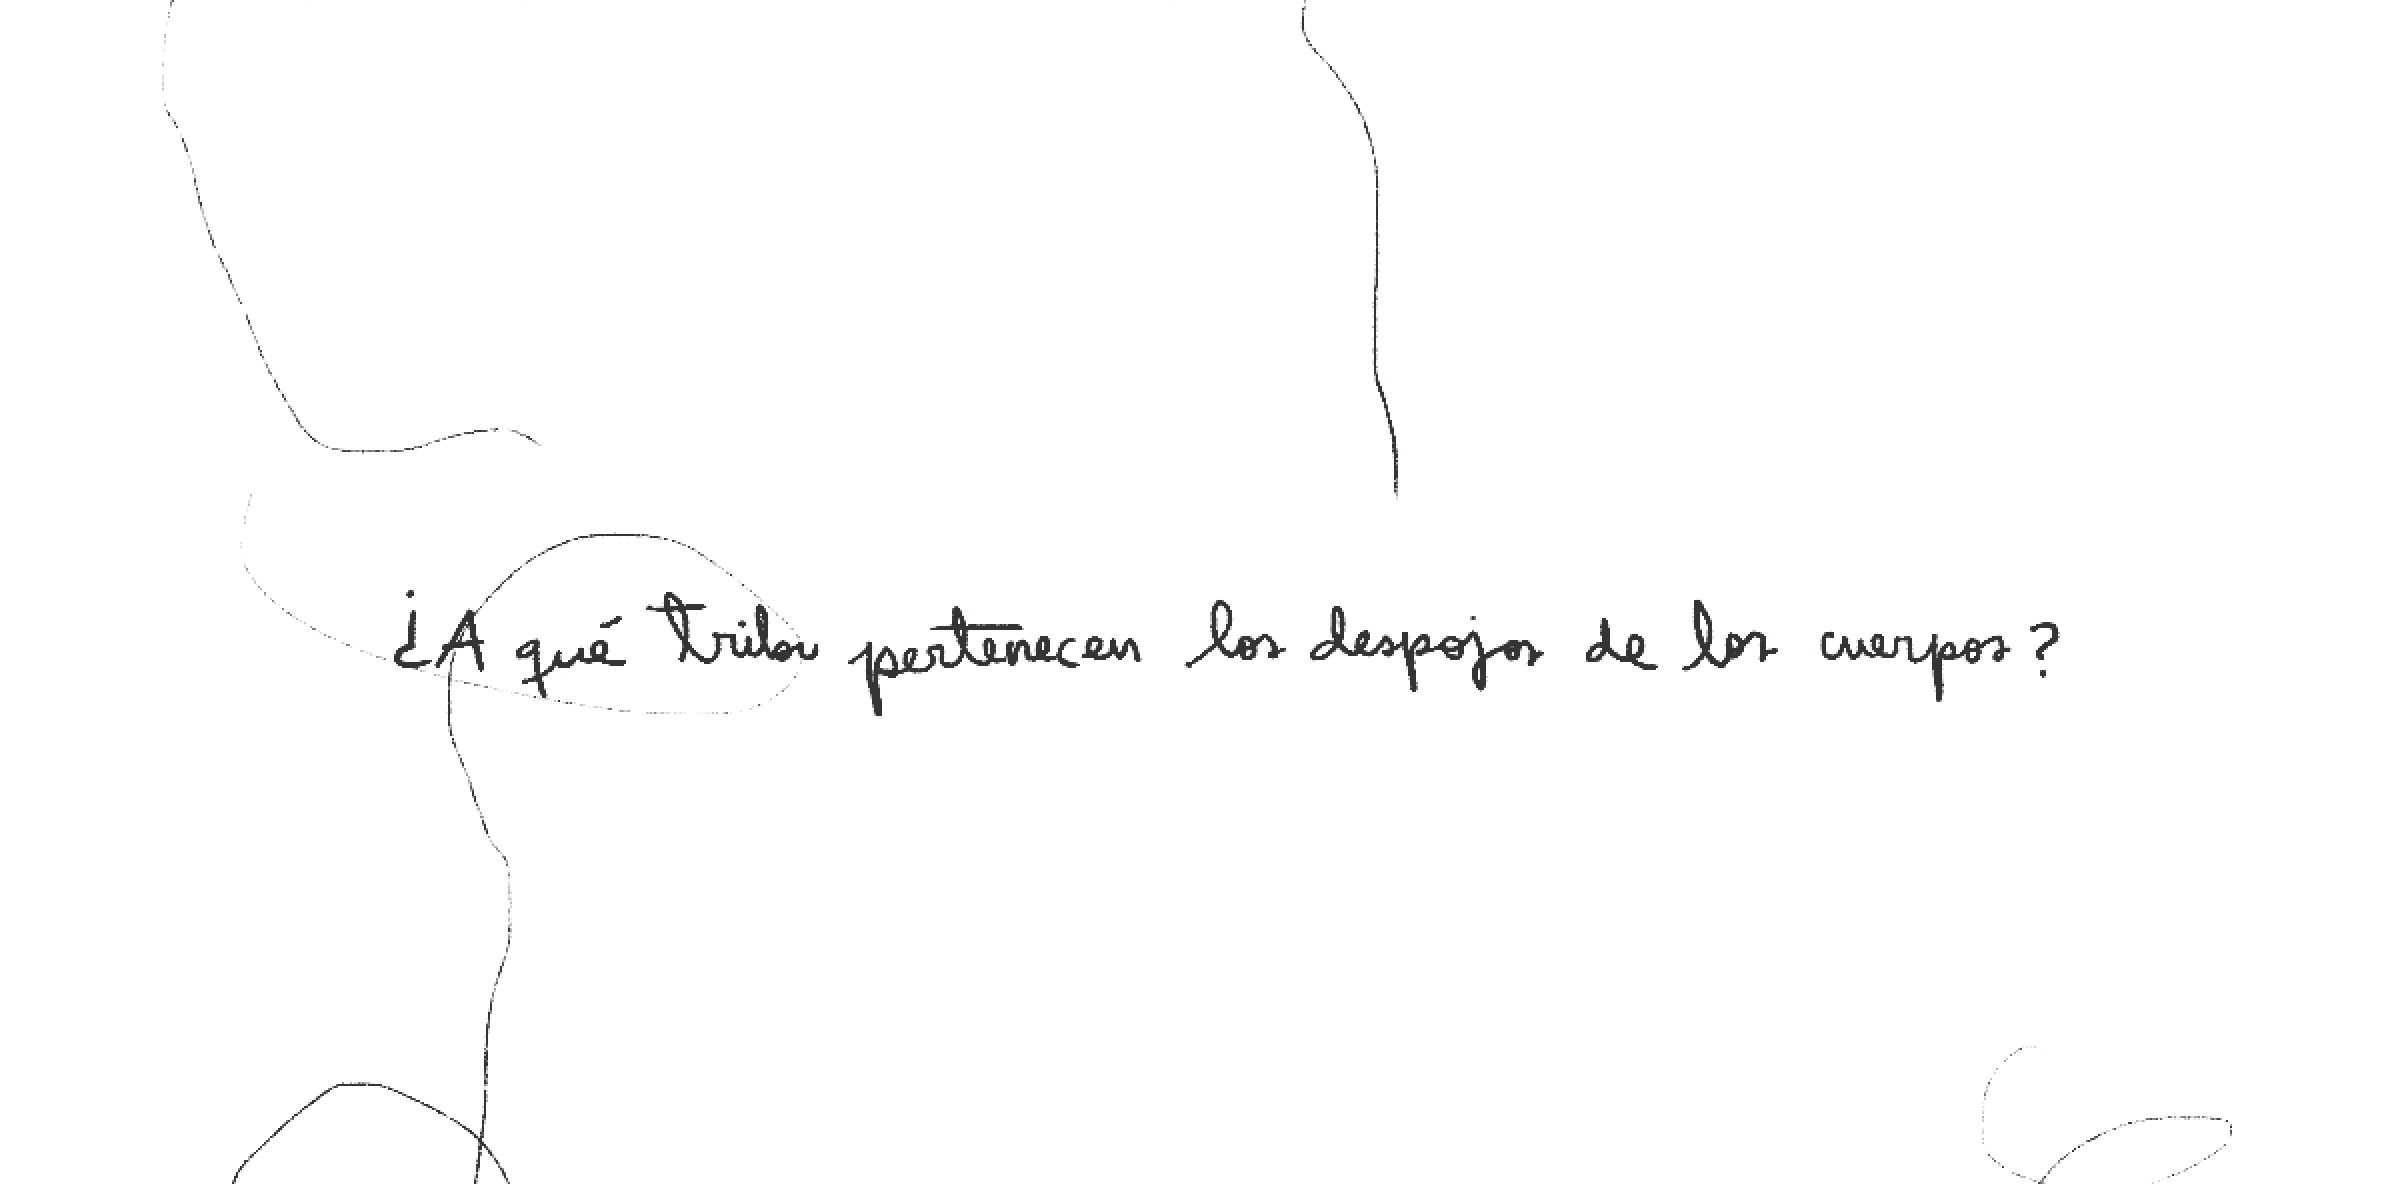 ¿A qué tribu pertenecen los despojos de los cuerpos?